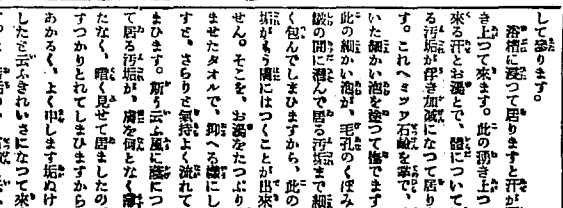 して參ります。
浴槽に浸つて居りますと汗が
き上つて來ます。此の湧き上つ
來る汗とお湯とで、體について
る汚垢が浮き加減になつて居り
す。これへミツワ石鹸を掌で、
いた細かい泡を塗つて撫でます
此の細かい泡が、毛孔のくぼみ
皺の間に潜んで居る汚垢まで細
く包んでしまひますから、此の
垢がもう膚にはつくことが出來
せん。そこを、お湯をたつぷり
ませたタオルで、抑へる樣にし
すと、さらりと氣持よく流れて
まひます。斯う云ふ風に膚につ
て居る汚垢が、膚を何となく
たなく、暗く見せて居ましたの
すつかりとれてしまひますから
あかるく、よく申します垢ぬけ
したと云ふきれいさになつて來